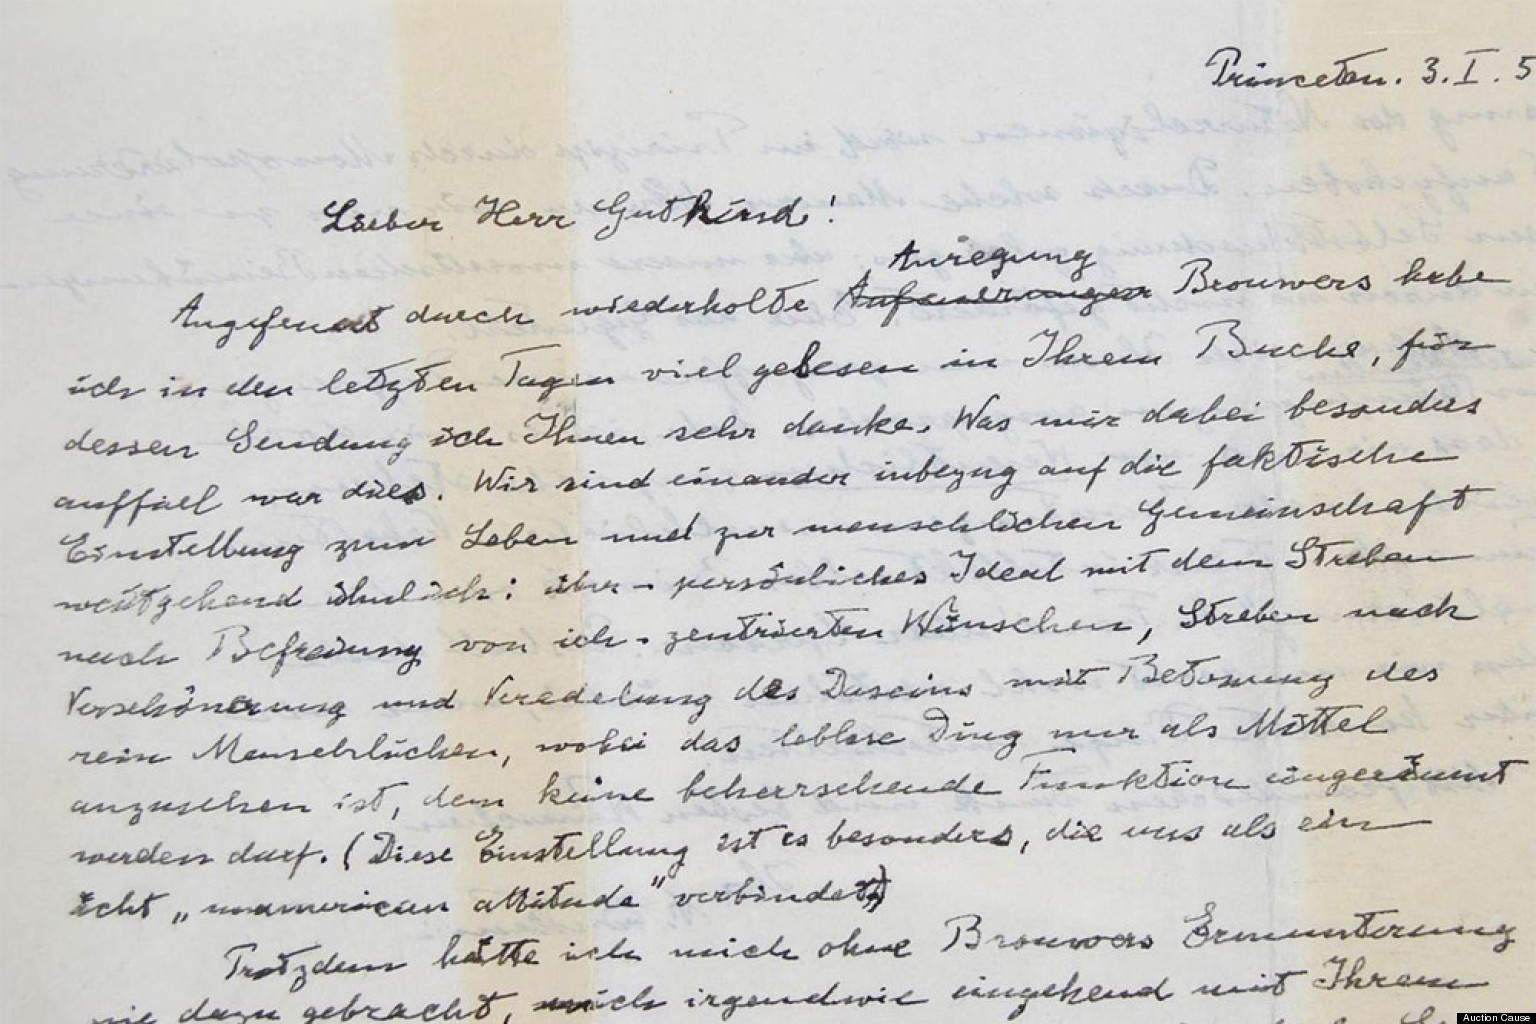 Princeton. 3. I. 5
Lieber Herr Gutkind!
Anregung
Angefeuert durch wiederholte Anfeuerungen Brouwers habe
ich in den letzten Tagen viel gelesen in Ihrem Buche, für
dessen Sendung ich Ihnen sehr danke. Was mir dabei besonders
auffiel war dies. Wir sind einander inbezug auf die faktische
Einstellung zum Leben und zur menschlichen Gemeinschaft
weitgehend ähnlich: über-persönliches Ideal mit dem Streben
nach Befreiung von ich-zentrierten Wünschen, Streben nach
Verschönerung und Veredelung des Daseins mit Betonung des
rein Menschlichen, wobei das leblose Ding nur als Mittel
anzusehen ist, dem keine beherrschende Funktion eingeräumt
werden darf. (Diese Einstellung ist es besonders, die uns als ein
echt „unamerican attitude" verbindet)
Trotzdem hätte ich mich ohne Brouwers Ermunterung
nie dazu gebracht, mich irgendwie eingehend mit Ihrem
Auction Cause